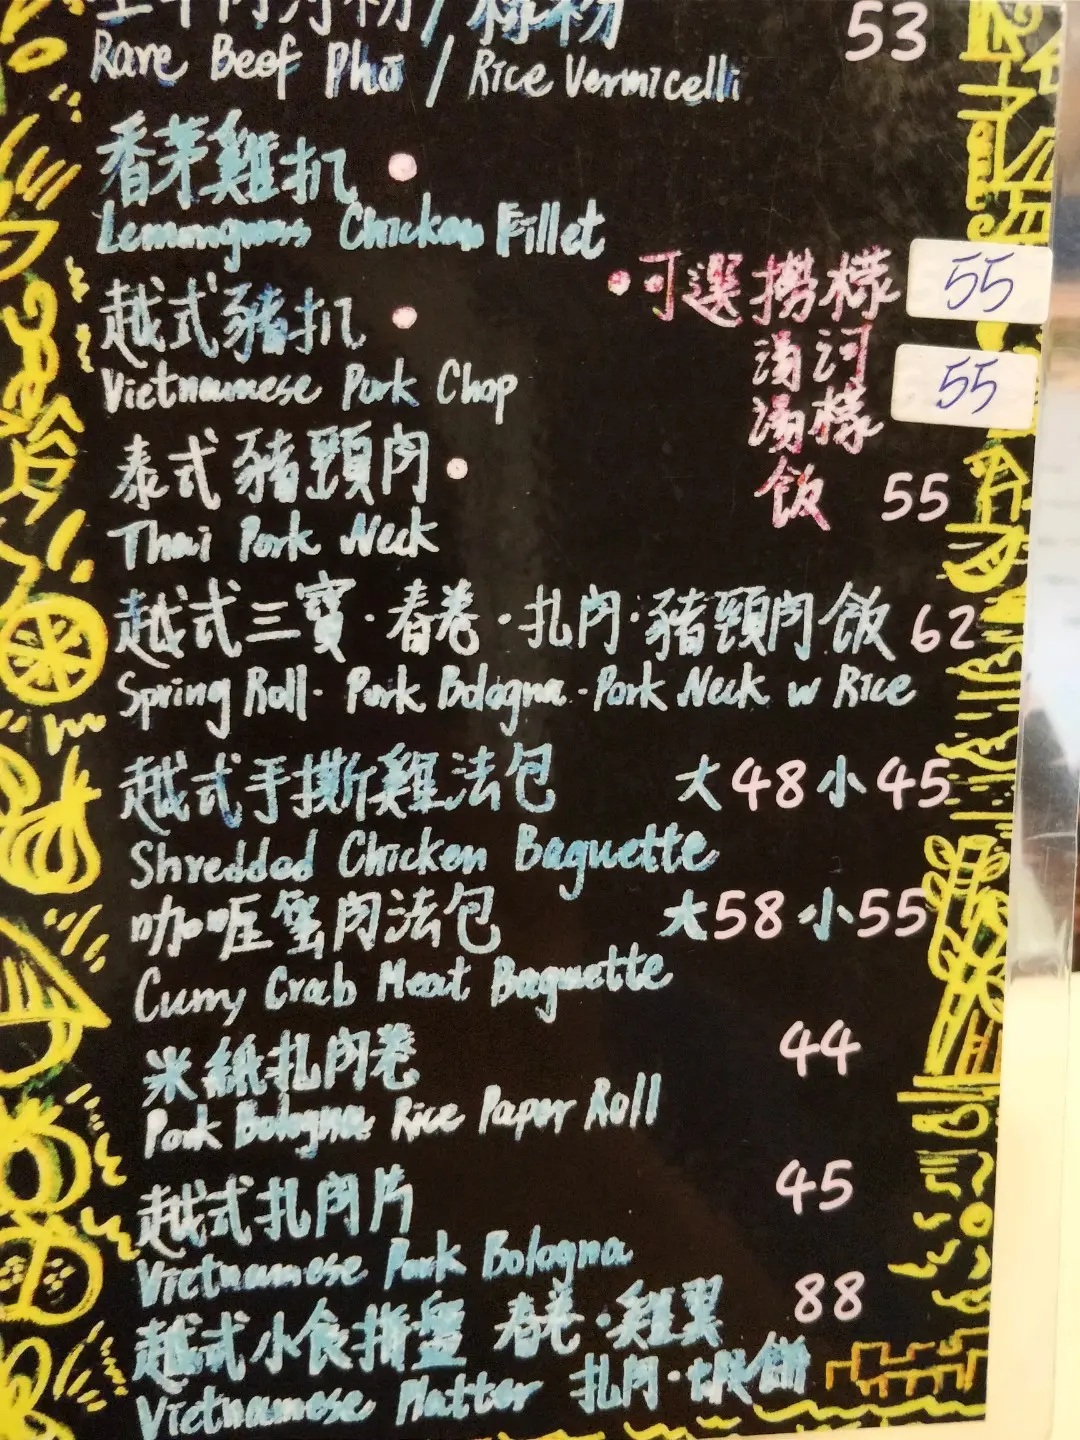 生牛肉河粉/檬粉 53
Rare Beef Pho / Rice Vermicelli
香茅雞扒
Lemongrass Chicken Fillet
•可選撈檬 55
越式豬扒
湯河 55
Vietnamese Pork Chop
湯檬
泰式豬頸肉
飯 55
Thai Pork Neck
越式三寶·春卷·扎肉·豬頸肉飯 62
Spring Roll· Pork Bologna·Pork Neck w Rice
越式手撕雞法包 大48小45
Shredded Chicken Baguette
咖喱蟹肉法包 大58小55
Curry Crab Meat Baguette
米紙扎肉卷 44
Pork Bologna Rice Paper Roll
越式扎肉片 45
Vietnamese Pork Bologna
越式小食拼盤 春卷·雞翼 88
Vietnamese Platter 扎肉·蝦餅